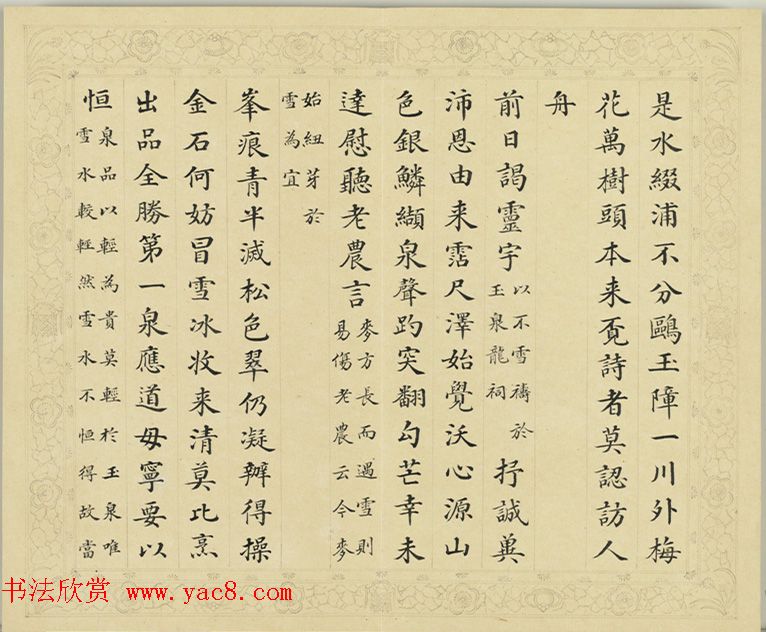 是水綴浦不分鷗玉障一川外梅
花萬樹頭本来覔詩者莫認訪人
舟
前日謁靈宇以不雪禱於玉泉龍祠抒誠兾
沛恩由来霑尺澤始覺沃心源山
色銀鱗纈泉聲趵突翻勾芒幸未
達慰聽老農言麥方長而遇雪則易傷老農云今麥
始紐芽於
雪為宜
峯痕青半滅松色翠仍凝辦得操
金石何妨冒雪冰收来清莫比烹
出品全勝第一泉應道毋寧要以
恒泉品以輕為貴莫輕於玉泉唯雪水較輕然雪水不恒得故當
书法欣赏 www.yac8.com